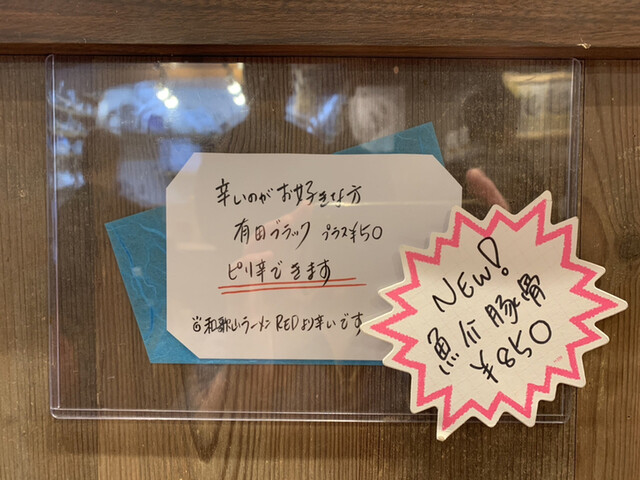 辛いのがお好きな方
有田ブラック プラス¥50
ピリ辛できます
和歌山ラーメン REDより辛いです
NEW!
魚介豚骨
¥850